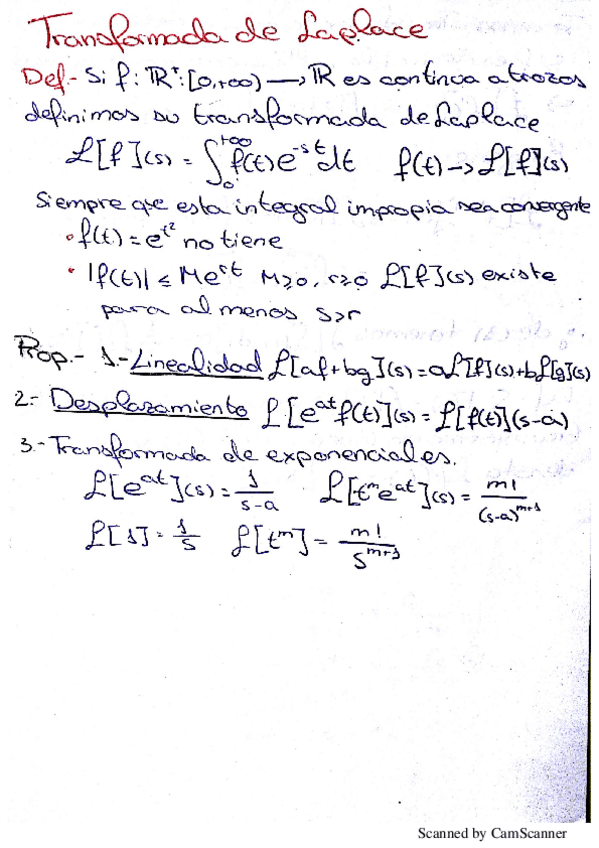 Transformada de Laplace
Def.- Si f: ℝ⁺: [0,+∞) → ℝ es continua a trozos
definimos su transformada de Laplace
ℒ[f](s) = ∫₀^{+∞} f(t)e^{-st}dt f(t) → ℒ[f](s)
Siempre que esta integral impropia sea convergente
• f(t) = e^{t²} no tiene
• |f(t)| ≤ Me^{rt} M≥0, r≥0 ℒ[f](s) existe
para al menos s>r
Prop.- 1.- Linealidad ℒ[af+bg](s)=aℒ[f](s)+bℒ[g](s)
2.- Desplazamiento ℒ[e^{at}f(t)](s) = ℒ[f(t)](s-a)
3.- Transformada de exponenciales.
ℒ[e^{at}](s) = 1/(s-a) ℒ[t^m e^{at}](s) = m!/(s-a)^{m+1}
ℒ[1] = 1/s ℒ[t^m] = m!/s^{m+1}
Scanned by CamScanner